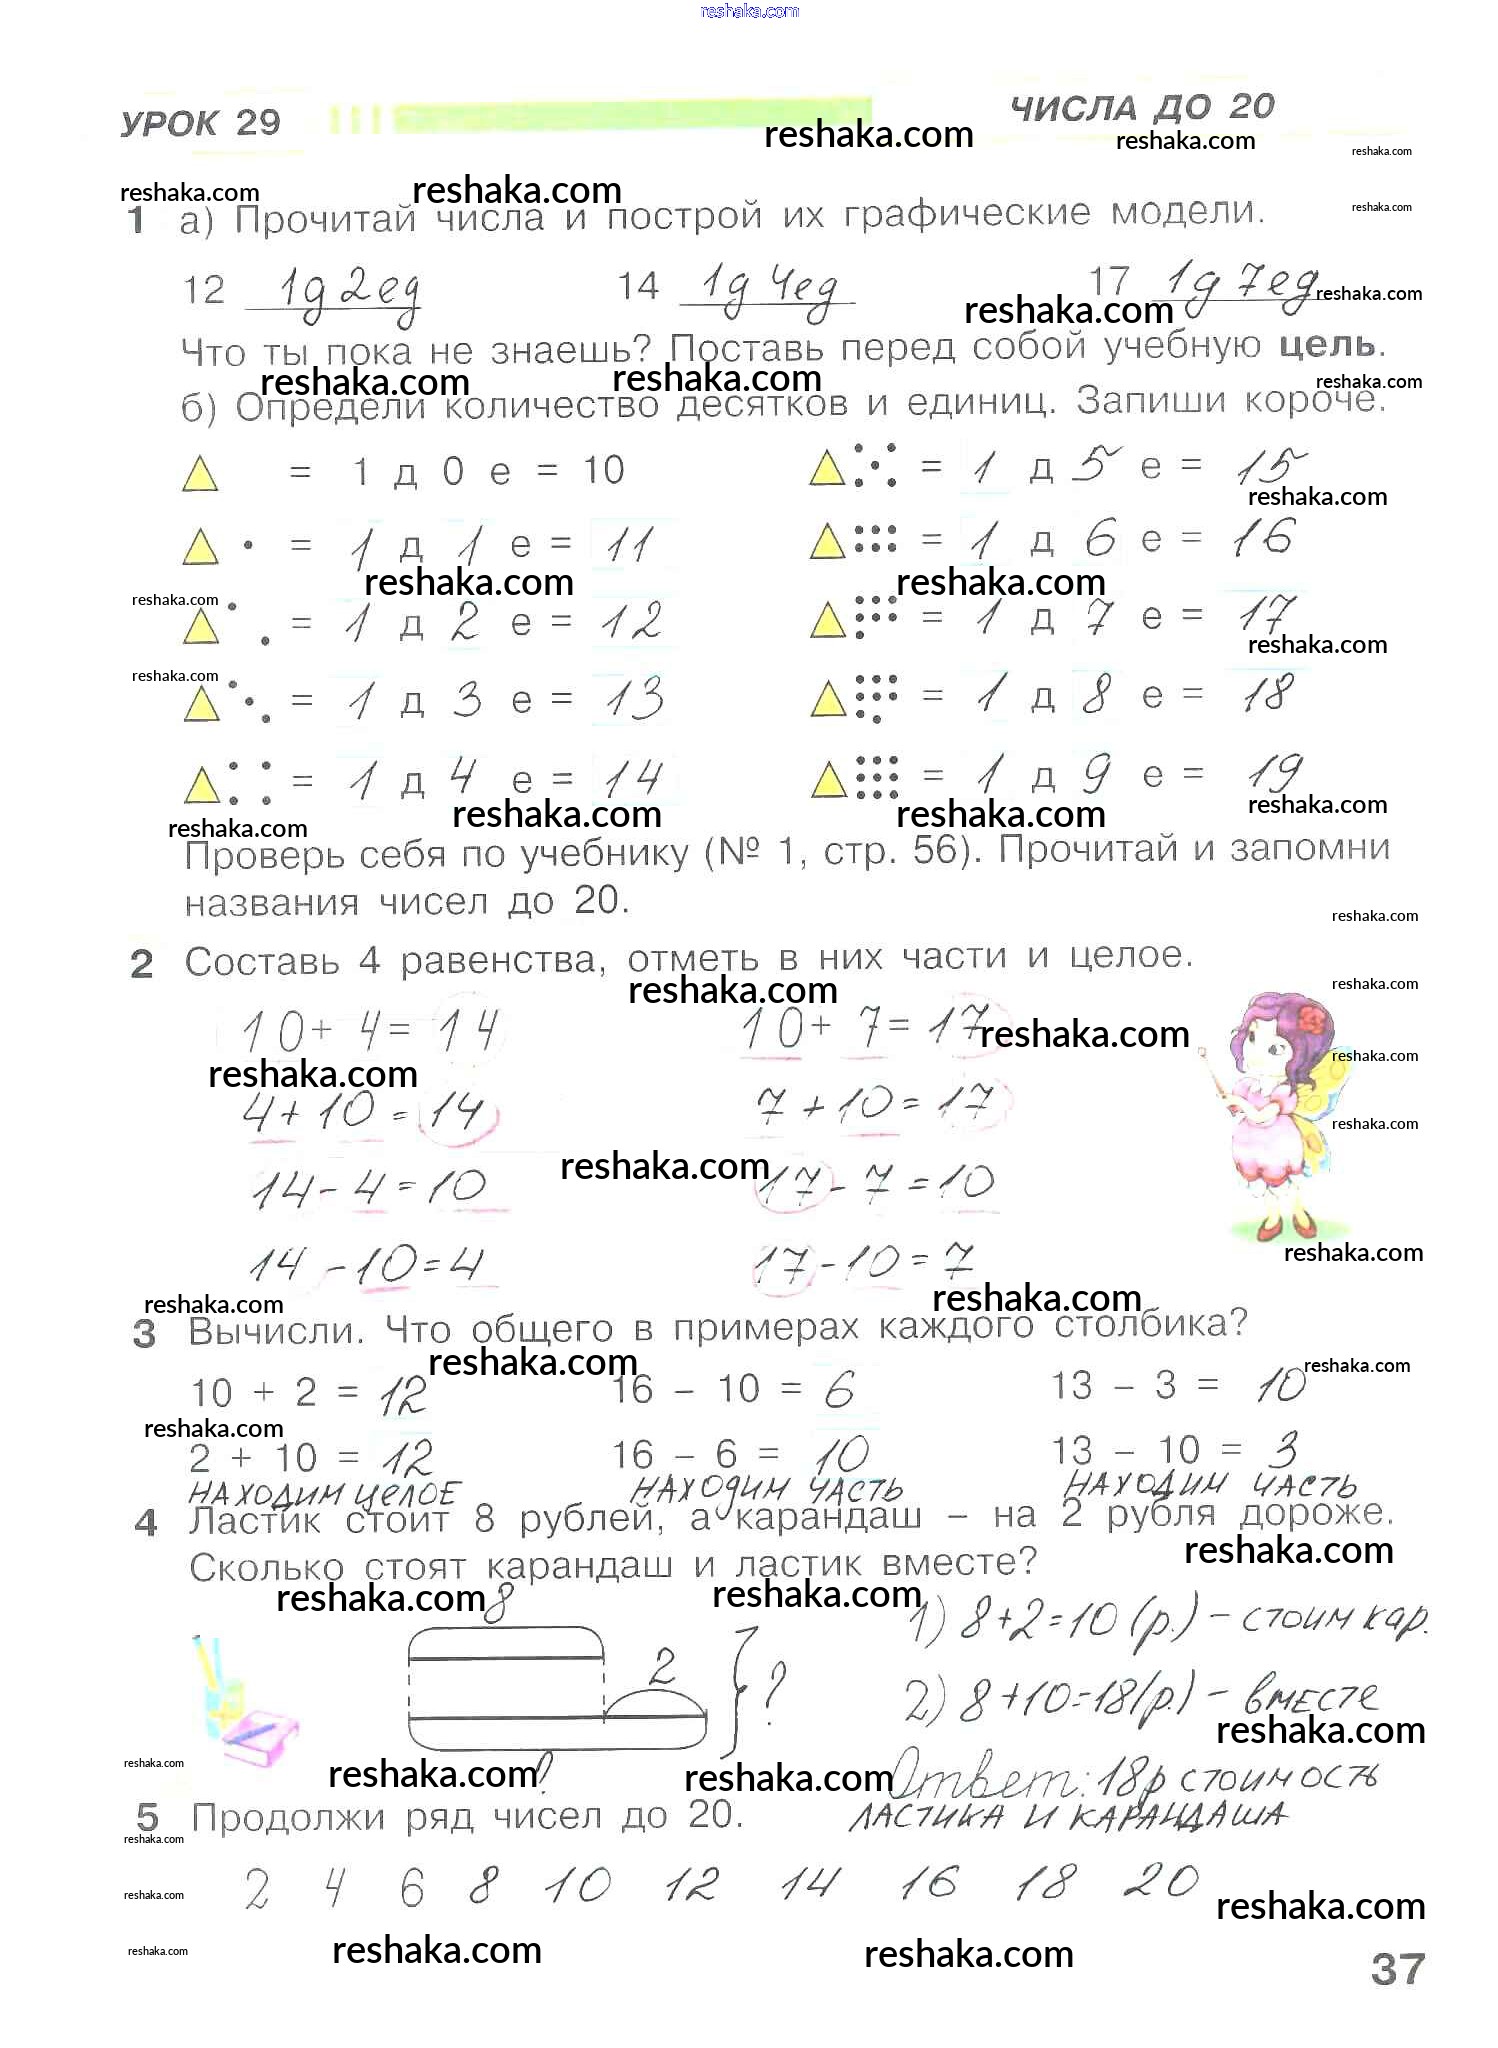 reshaka.com
УРОК 29 ЧИСЛА ДО 20
reshaka.com reshaka.com reshaka.com
reshaka.com reshaka.com reshaka.com
1 а) Прочитай числа и построй их графические модели.
12 1д 2ед 14 1д 4ед 17 1д 7ед
reshaka.com reshaka.com
Что ты пока не знаешь? Поставь перед собой учебную цель.
reshaka.com reshaka.com reshaka.com
б) Определи количество десятков и единиц. Запиши короче.
= 1 д 0 е = 10 = 1 д 5 е = 15
reshaka.com
= 1 д 1 е = 11 = 1 д 6 е = 16
reshaka.com reshaka.com reshaka.com
= 1 д 2 е = 12 = 1 д 7 е = 17
reshaka.com reshaka.com
= 1 д 3 е = 13 = 1 д 8 е = 18
= 1 д 4 е = 14 = 1 д 9 е = 19
reshaka.com reshaka.com reshaka.com reshaka.com
Проверь себя по учебнику (№ 1, стр. 56). Прочитай и запомни
названия чисел до 20.
reshaka.com
2 Составь 4 равенства, отметь в них части и целое.
reshaka.com reshaka.com
10 + 4 = 14 10 + 7 = 17
reshaka.com reshaka.com reshaka.com
4 + 10 = 14 7 + 10 = 17
reshaka.com reshaka.com
14 - 4 = 10 17 - 7 = 10
14 - 10 = 4 17 - 10 = 7
reshaka.com
reshaka.com reshaka.com
3 Вычисли. Что общего в примерах каждого столбика?
reshaka.com reshaka.com
10 + 2 = 12 16 – 10 = 6 13 – 3 = 10
reshaka.com
2 + 10 = 12 16 – 6 = 10 13 – 10 = 3
НАХОДИМ ЦЕЛОЕ НАХОДИМ ЧАСТЬ НАХОДИМ ЧАСТЬ
4 Ластик стоит 8 рублей, а карандаш – на 2 рубля дороже.
reshaka.com
Сколько стоят карандаш и ластик вместе?
reshaka.com reshaka.com
8
1) 8 + 2 = 10 (р.) – стоим кар.
2 ?
2) 8 + 10 = 18 (р.) – вместе
reshaka.com
reshaka.com reshaka.com ? reshaka.com
Ответ: 18р стоимость
ЛАСТИКА И КАРАНДАША
5 Продолжи ряд чисел до 20.
reshaka.com
2 4 6 8 10 12 14 16 18 20
reshaka.com reshaka.com
reshaka.com reshaka.com reshaka.com
37